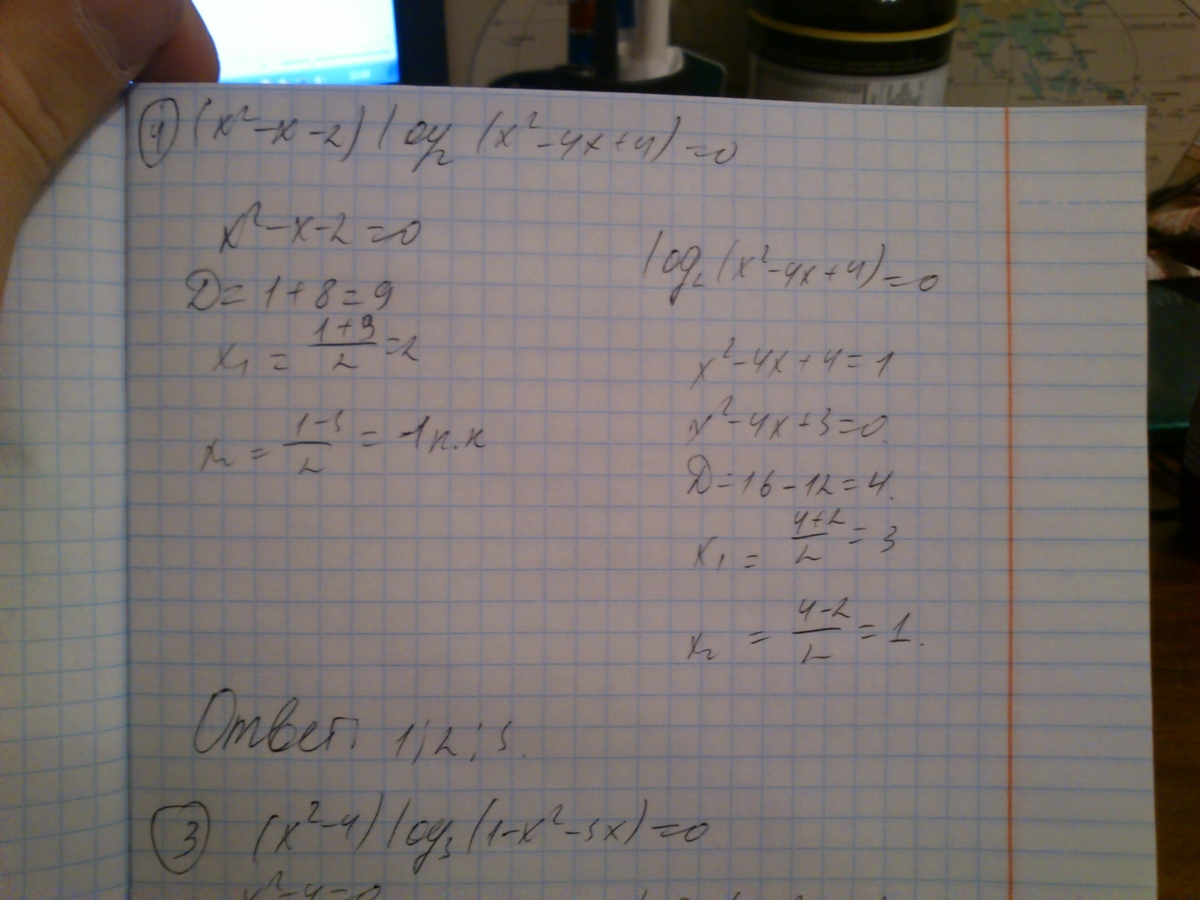 ④ (x²-x-2) log₂ (x²-4x+4)=0
x²-x-2=0
D=1+8=9
x₁ = (1+3)/2 = 2
x₂ = (1-3)/2 = -1 п.к
log₂(x²-4x+4)=0
x²-4x+4=1
x²-4x+3=0
D=16-12=4.
x₁ = (4+2)/2 = 3
x₂ = (4-2)/2 = 1.
Ответ: 1; 2; 3.
③ (x²-4) log₃ (1-x²-3x)=0
x²-4=0